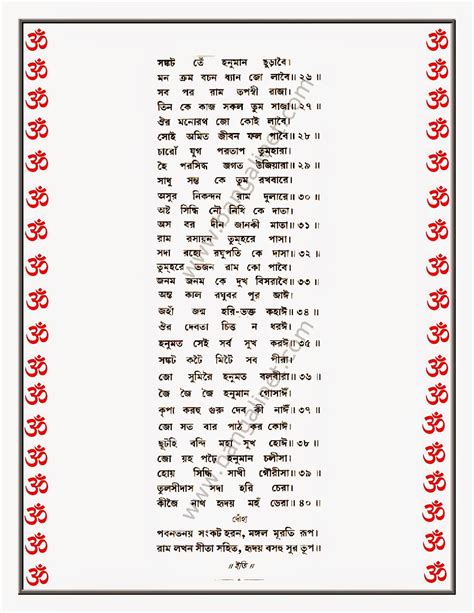 সঙ্কট তেঁ হনুমান ছুড়াবৈ।
মন ক্রম বচন ধ্যান জো লাবৈ॥ ২৬ ॥
সব পর রাম তপস্বী রাজা।
তিন কে কাজ সকল তুম সাজা॥ ২৭ ॥
ঔর মনোরথ জো কোই লাবৈ।
সোই অমিত জীবন ফল পাবৈ॥ ২৮ ॥
চারোঁ যুগ পরতাপ তুম্হারা।
হৈ পরসিদ্ধ জগত উজিয়ারা॥ ২৯ ॥
সাধু সন্ত কে তুম রখবারে।
অসুর নিকন্দন রাম দুলারে॥ ৩০ ॥
অষ্ট সিদ্ধি নৌ নিধি কে দাতা।
অস বর দীন জানকী মাতা॥ ৩১ ॥
রাম রসায়ন তুম্হরে পাসা।
সদা রহো রঘুপতি কে দাসা॥ ৩২ ॥
তুম্হরে ভজন রাম কো পাবৈ।
জনম জনম কে দুখ বিসরাবৈ॥ ৩৩ ॥
অন্ত কাল রঘুবর পুর জাঈ।
জহাঁ জন্ম হরি-ভক্ত কহাঈ॥ ৩৪ ॥
ঔর দেবতা চিত্ত ন ধরঈ।
হনুমত সেই সর্ব সুখ করঈ॥ ৩৫ ॥
সঙ্কট কটৈ মিটৈ সব পীরা।
জো সুমিরৈ হনুমত বলবীরা॥ ৩৬ ॥
জৈ জৈ জৈ হনুমান গোসাঈঁ।
কৃপা করহু গুরু দেব কী নাঈঁ॥ ৩৭ ॥
জো সত বার পাঠ কর কোঈ।
ছুটহি বন্দি মহা সুখ হোঈ॥ ৩৮ ॥
জো য়হ পঢ়ৈ হনুমান চলীসা।
হোয় সিদ্ধি সাখী গৌরীসা॥ ৩৯ ॥
তুলসীদাস সদা হরি চেরা।
কীজৈ নাথ হৃদয় মহঁ ডেরা॥ ৪০ ॥
দোঁহা
পবনতনয় সংকট হরন, মঙ্গল মূরতি রূপ।
রাম লখন সীতা সহিত, হৃদয় বসহু সুর ভূপ॥
॥ ইতি ॥
www.bangalinet.com
www.bangalinet.com